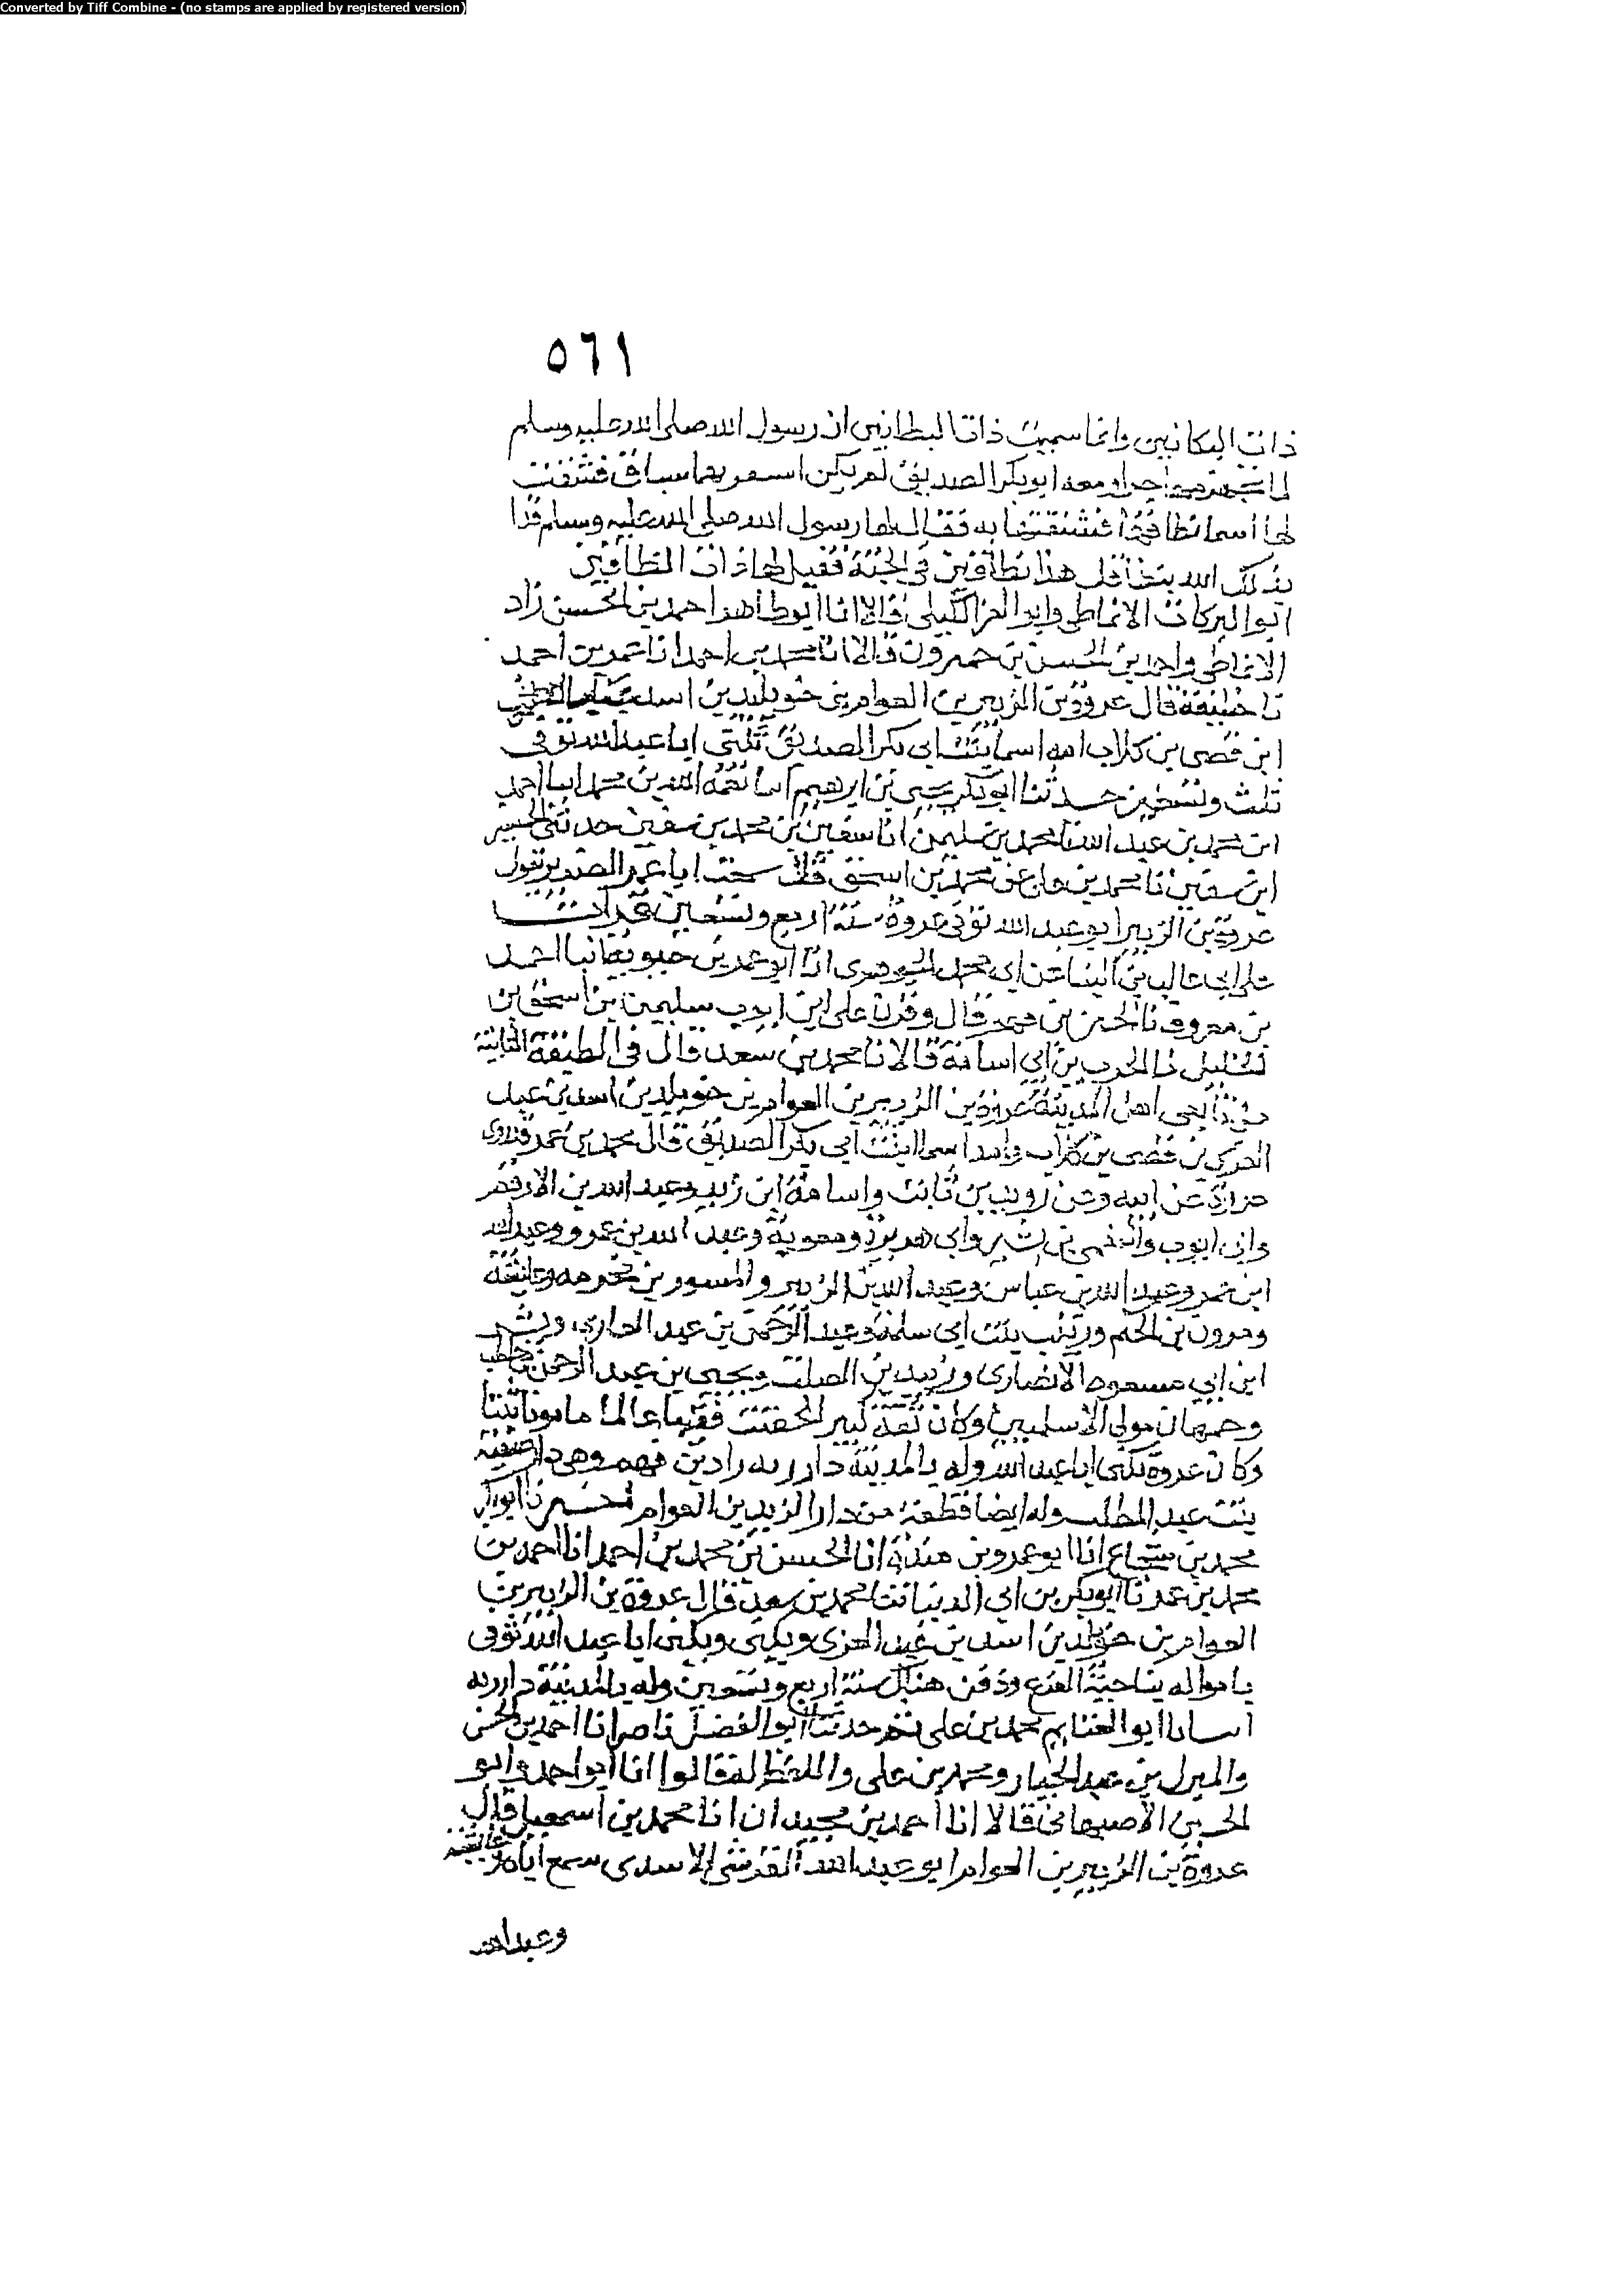 Converted by Tiff Combine - (no stamps are applied by registered version)
٥٦١
ذات النطاقين وانما سميت ذات النطاقين ان رسول الله صلى الله عليه وسلم
لما تجهز مهاجرا ومعه ابو بكر الصديق لم يكن لسفرتهما شناق فشقت
لها اسما نطاقها فشنقتها به فقال لها رسول الله صلى الله عليه وسلم قد
الله هذا نطاقين في الجنة فقيل لها ذات النطاقين
ابو البركات الانماطي وابو العز الكيلي قالا انا ابو طاهر احمد بن الحسن زاد
الانماطي واحمد بن الحسن بن خيرون قالا انا محمد بن احمد انا عمر بن احمد
نا خليفة قال عروة بن الزبير بن العوام بن خويلد بن اسد بن
ابن قصي بن كلاب امه اسما بنت ابي بكر الصديق تكنى ابا عبد الله توفي
ثلث وتسعين حدثنا ابو بكر يحيى بن ابرهيم انبا نعمة الله بن محمد انبا احمد
ابن محمد بن عبد الله نا محمد بن سليمن انا سفين بن محمد بن سفين حدثني الحسن
ابن سفين نا محمد بن علي عن محمد بن اسحق قال سمعت ابا عمر الضرير يقول
عروة بن الزبير ابو عبد الله توفي عروة سنة اربع وتسعين قرات
على ابي غالب بن البنا عن ابي محمد الجوهري انا ابو عمر بن حيويه انبا احمد
بن معروف نا الحسين بن فهم قال وقرئ على ابن ايوب سليمن بن اسحق بن
الخليل نا الحرث بن ابي اسامة قالا نا محمد بن سعد قال في الطبقة الثانية
اهل المدينة عروة بن الزبير بن العوام بن خويلد بن اسد بن عبد
العزى بن قصي بن كلاب وامه اسما ابنت ابي بكر الصديق قال محمد بن عمر قد روى
عروة عن ابيه وعن زيد بن ثابت واسامة ابن زيد وعبد الله بن الارقم
وابي ايوب والنعمن بن بشير وابي هريرة ومعوية وعبد الله بن عمرو وعبد الله
ابن عمر وعبد الله بن عباس وعبد الله بن الزبير والمسور بن مخرمه وعائشة
ومرون بن الحكم وزينب بنت ابي سلمة وعبد الرحمن بن عبد القاري وبشير
ابن ابي مسعود الانصاري وزبيد بن الصلت ويحيى بن عبد الرحمن بن حاطب
وجمهان مولى الاسلميين وكان ثقة كثير الحديث فقيها عالما مامونا ثبتا
وكان عروة يكنى ابا عبد الله وله بالمدينة دار ربه وهي دار صفية
بنت عبد المطلب وله ايضا قطعة من دار الزبير بن العوام نا ابو بكر
محمد بن شجاع انا ابو عمرو بن مندة انا الحسن بن محمد بن احمد انا احمد بن
محمد بن عمر نا ابو بكر بن ابي الدنيا نا محمد بن سعد قال عروة بن الزبير بن
العوام بن خويلد بن اسد بن عبد العزى ويكنى ويكنى ابا عبد الله توفي
باموا له بناحية الفرع ودفن هناك سنة اربع وتسعين وله بالمدينة دار ربه
انبانا ابو الغنايم محمد بن علي ثم حدثنا ابو الفضل بن ناصر انا احمد بن الحسن
والمبرك بن عبد الجبار ومحمد بن علي واللفظ له قالوا انا ابو احمد وابو
الحسين الاصبهاني قالا انا احمد بن عبدان انا محمد بن اسمعيل قال
عروة بن الزبير بن العوام ابو عبد الله القرشي الاسدي سمع اباه وعائشة
وعبد الله